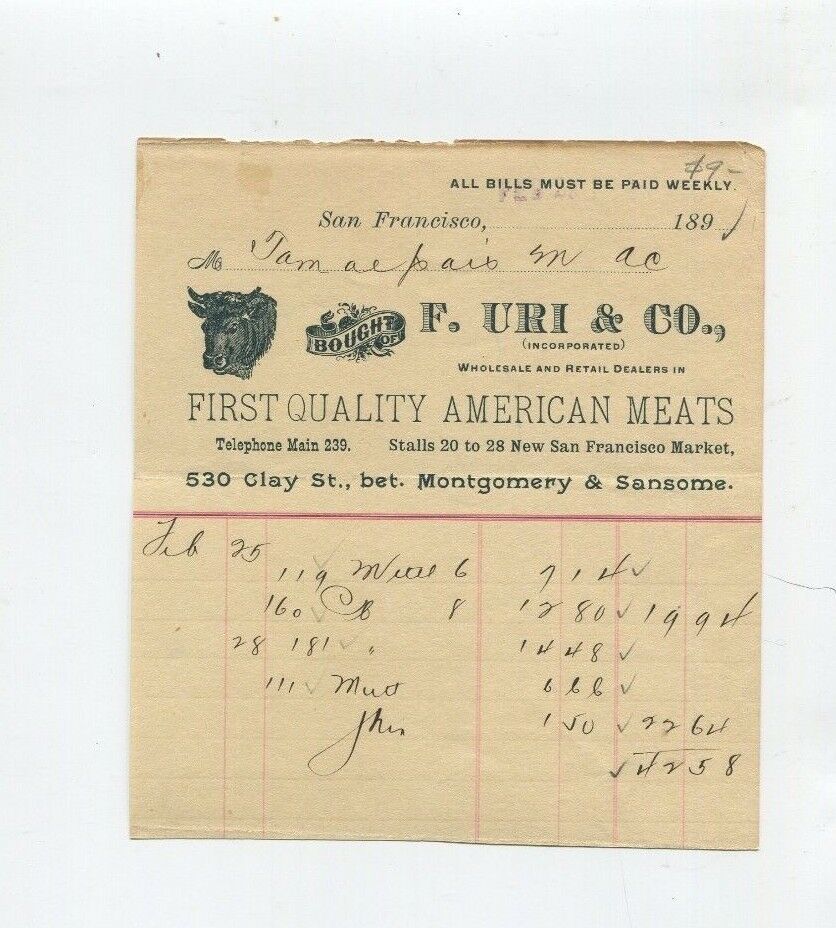 49-
ALL BILLS MUST BE PAID WEEKLY.
San Francisco, 189
M Tamalpais M Co
BOUGHT OF F. URI & CO.,
(INCORPORATED)
WHOLESALE AND RETAIL DEALERS IN
FIRST QUALITY AMERICAN MEATS
Telephone Main 239. Stalls 20 to 28 New San Francisco Market,
530 Clay St., bet. Montgomery & Sansome.
Feb 25
119 6 7 14 ✓
160 CB 8 12 80 ✓ 19 94
28 181 " 14 48 ✓
111 Mutt 6 66 ✓
1 50 ✓ 22 64
✓ 42 58